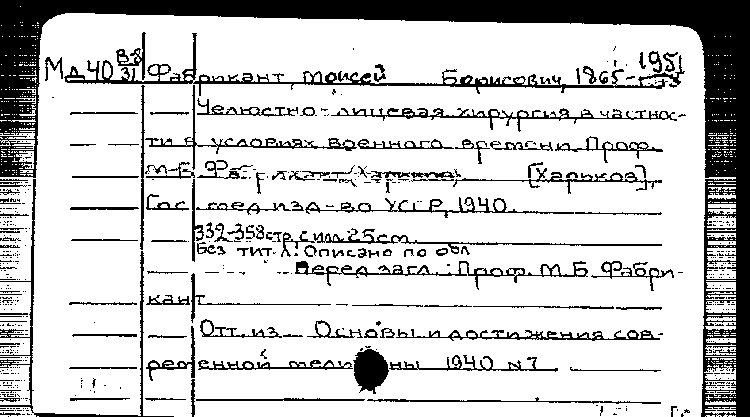 1951
Мд40 В-8/31 Фабрикант, Моисей Борисович, 1865-
Челюстно-лицевая хирургия, в частнос-
ти в условиях военного времени. Проф.
М-Б Фабрикант (Харьков) [Харьков],
Гос. мед. изд-во УССР, 1940.
332-358 стр. с илл. 25 cm.
Без тит. л. Описано по обл
Перед загл.: Проф. М.Б. Фабри-
кант
Отт. из Основы и достижения сов-
ременной медицины 1940 N7